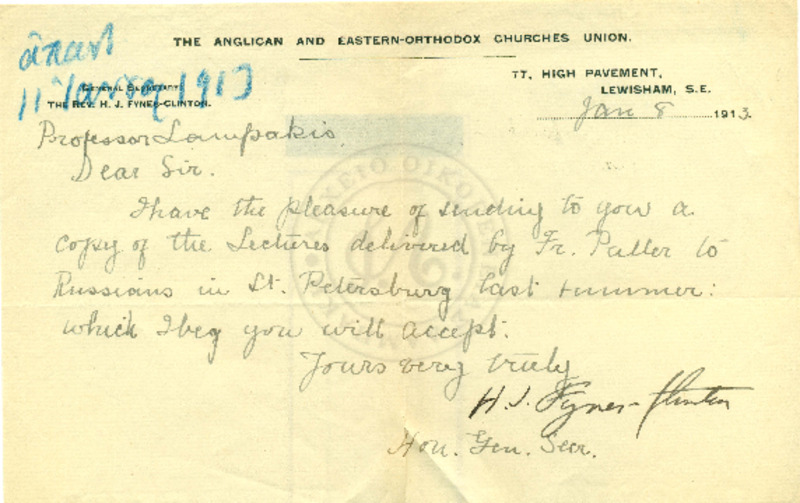 THE ANGLICAN AND EASTERN-ORTHODOX CHURCHES UNION.
11 1913
GENERAL SECRETARY:
THE REV. H. J. FYNES-CLINTON.
HIGH PAVEMENT,
LEWISHAM, S.E.
Jan 8 1913.
Professor Lampakis
Dear Sir.
I have the pleasure of sending to you a
copy of the Lectures delivered by Fr. Puller to
Russians in St. Petersburg last summer:
which I beg you will accept.
Yours very truly
H. J. Fynes-Clinton
Hon. Gen. Secr.